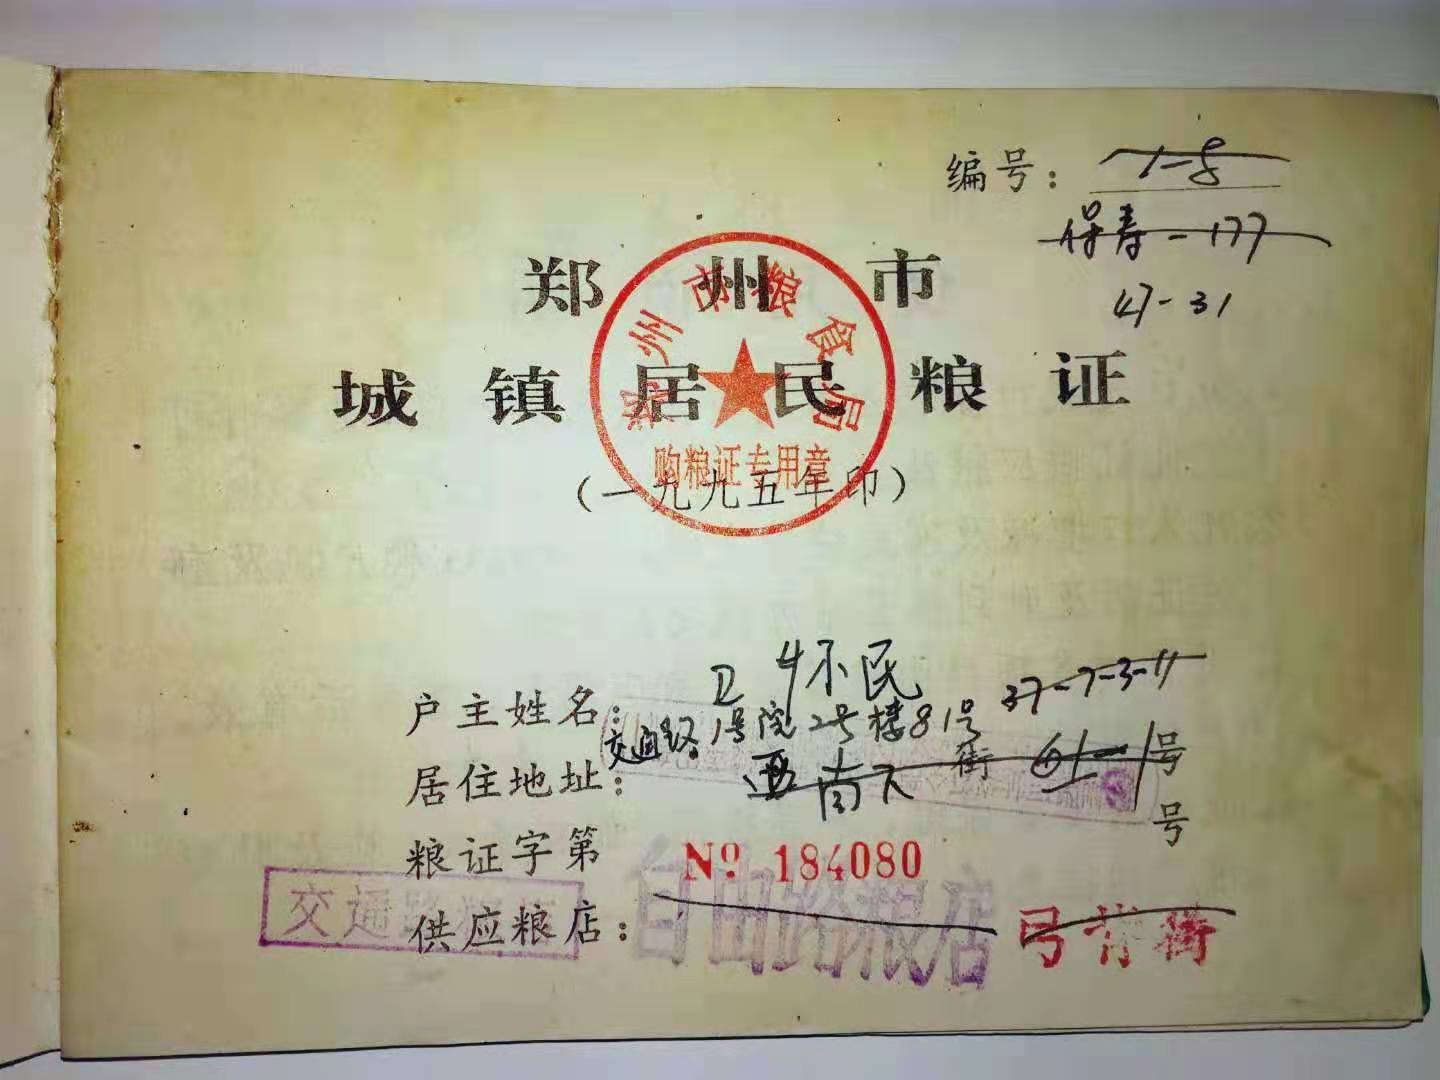 编号：1-8
保寿-177
47-31
郑州市
城镇居民粮证
（一九九五年印）
郑州市粮食局
购粮证专用章
户主姓名：卫怀民
37-7-3-11
交通路1号院2号楼81号
居住地址：西南下街61-1号
粮证字第 № 184080 号
供应粮店：自由路粮店 弓背街
交通路粮店